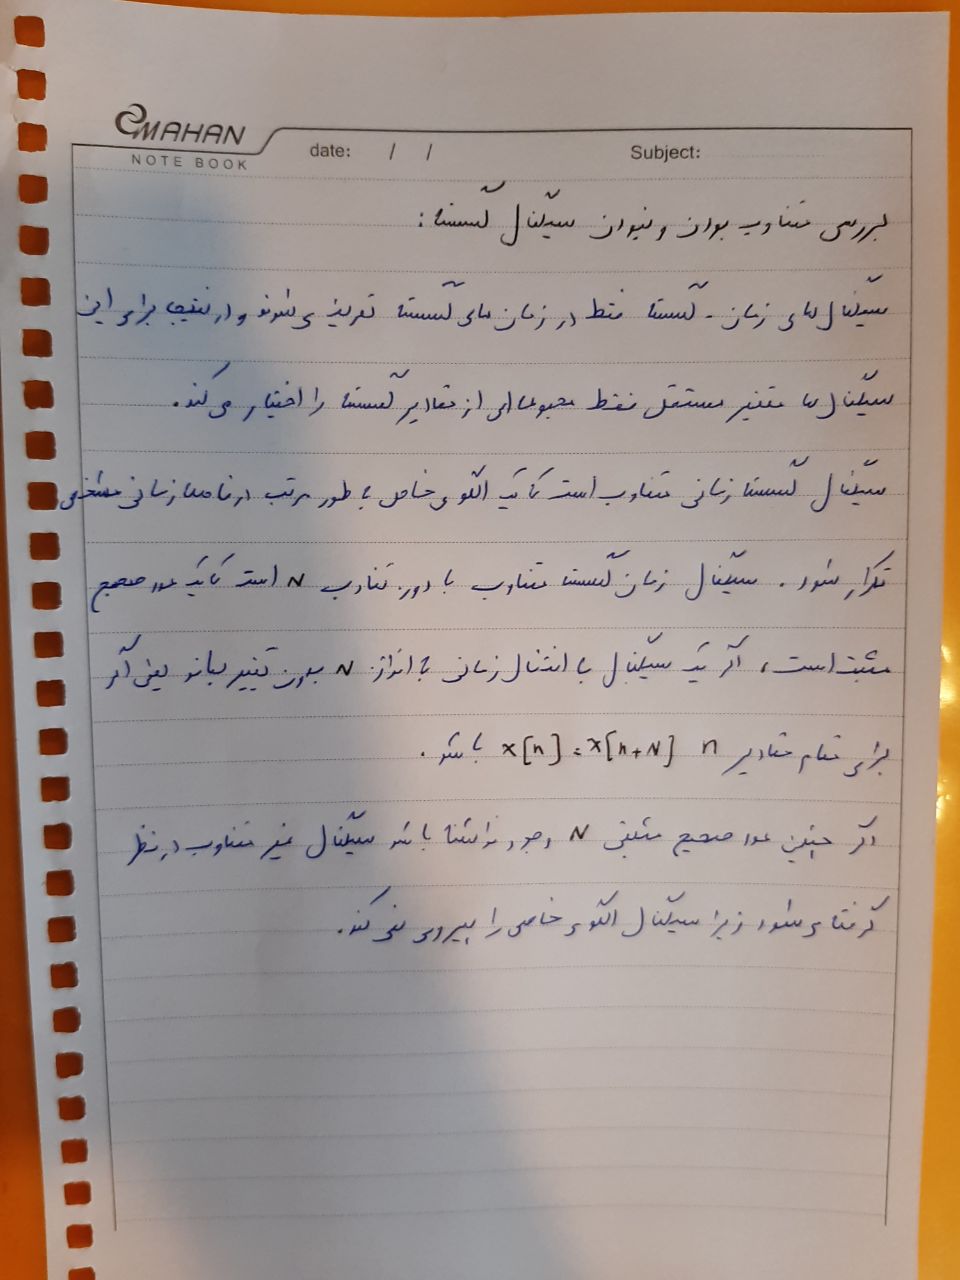 MAHAN
NOTE BOOK
date: / /
Subject:
بررسی متناوب بودن و نبودن سیگنال گسسته:
سیگنال های زمان - گسسته فقط در زمان های گسسته تعریف می شوند و در نتیجه برای این
سیگنال ها متغیر مستقل فقط مجموعه ای از مقادیر گسسته را اختیار می کند.
سیگنال گسسته زمانی متناوب است که یک الگوی خاص به طور مرتب در فاصله زمانی مشخصی
تکرار شود. سیگنال زمان گسسته متناوب با دوره تناوب N است که یک عدد صحیح
مثبت است، اگر یک سیگنال با انتقال زمانی به اندازه N بدون تغییر بماند یعنی اگر
برای تمام مقادیر n x[n] = x[n+N] باشد.
اگر چنین عدد صحیح مثبتی N وجود نداشته باشد سیگنال غیر متناوب در نظر
گرفته می شود زیرا سیگنال الگوی خاصی را پیروی نمی کند.